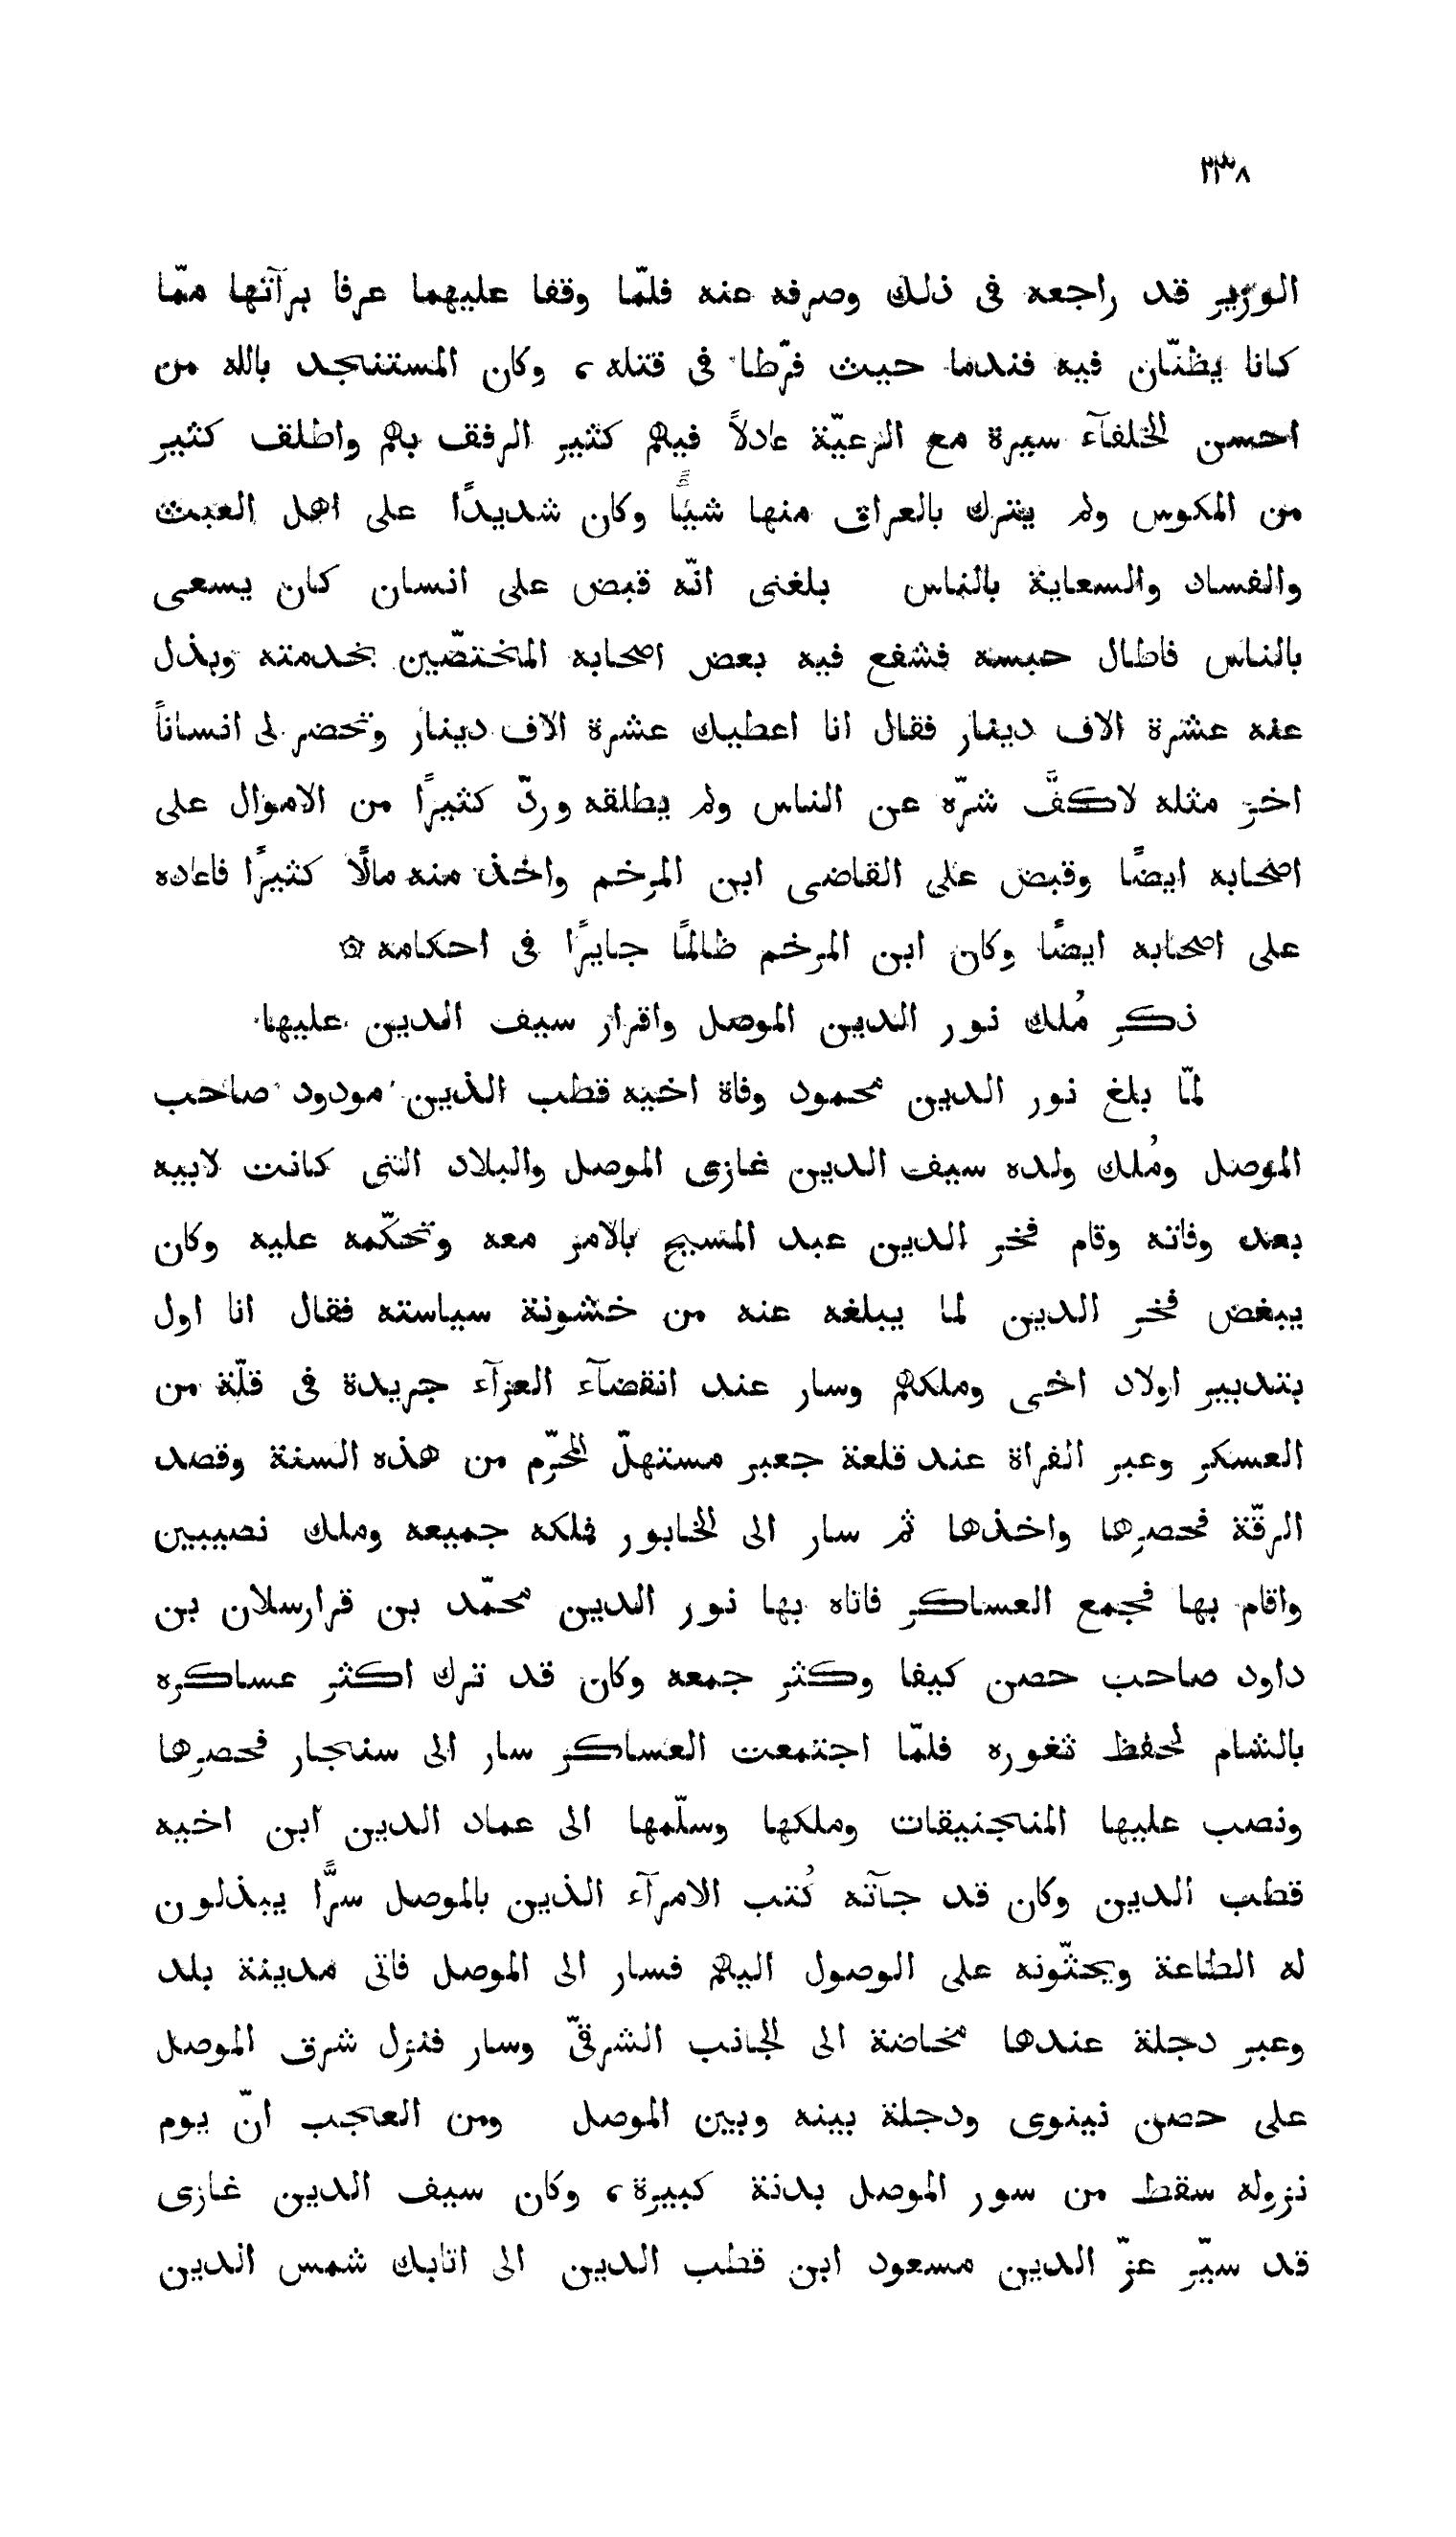 ٢٣٨
الوزير قد راجعه فى ذلك وصرفه عنه فلمّا وقفا عليهما عرفا برآتها ممّا
كانا يظنّان فيه فندما حيث فرّطا فى قتله، وكان المستنجد بالله من
احسن الخلفآء سيرة مع الرعيّة عادلاً فيهم كثير الرفق بهم واطلق كثير
من المكوس ولم يترك بالعراق منها شئًا وكان شديدًا على اهل العبث
والفساد والسعاية بالناس بلغنى انّه قبض على انسان كان يسعى
بالناس فاطال حبسه فشفع فيه بعض اصحابه المختصّين بخدمته وبذل
عنه عشرة الاف دينار فقال انا اعطيك عشرة الاف دينار وتحضر لى انساناً
اخر مثله لاكفَّ شرّه عن الناس ولم يطلقه وردّ كثيرًا من الاموال على
اصحابه ايضًا وقبض على القاضى ابن المرخم واخذ منه مالًا كثيرًا فاعاده
على اصحابه ايضًا وكان ابن المرخم ظالمًا جايرًا فى احكامه ۞
ذكر مُلك نور الدين الموصل واقرار سيف الدين عليها
لمّا بلغ نور الدين محمود وفاة اخيه قطب الدين مودود صاحب
الموصل ومُلك ولده سيف الدين غازى الموصل والبلاد التى كانت لابيه
بعد وفاته وقام فخر الدين عبد المسيح بالامر معه وتحكّمه عليه وكان
يبغض فخر الدين لما يبلغه عنه من خشونة سياسته فقال انا اول
بتدبير اولاد اخى وملكهم وسار عند انقضآء العزآء جريدة فى قلّة من
العسكر وعبر الفراة عند قلعة جعبر مستهلّ المحرّم من هذه السنة وقصد
الرقّة فحصرها واخذها ثم سار الى الخابور فملكه جميعه وملك نصيبين
واقام بها فجمع العساكر فاتاه بها نور الدين محمّد بن قرارسلان بن
داود صاحب حصن كيفا وكثر جمعه وكان قد ترك اكثر عساكره
بالشام لحفظ ثغوره فلمّا اجتمعت العساكر سار الى سنجار فحصرها
ونصب عليها المنجنيقات وملكها وسلّمها الى عماد الدين ابن اخيه
قطب الدين وكان قد جآته كُتب الامرآء الذين بالموصل سرًّا يبذلون
له الطاعة ويحثّونه على الوصول اليهم فسار الى الموصل فاتى مدينة بلد
وعبر دجلة عندها مخاضة الى الجانب الشرقىّ وسار فنزل شرق الموصل
على حصن نينوى ودجلة بينه وبين الموصل ومن العجب انّ يوم
نزوله سقط من سور الموصل بدنة كبيرة، وكان سيف الدين غازى
قد سيّر عزّ الدين مسعود ابن قطب الدين الى اتابك شمس الدين